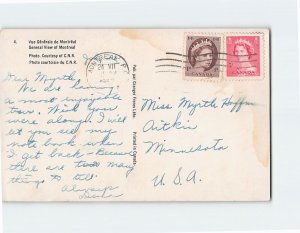 4.
Vue Générale de Montréal
General View of Montreal
Photo. Courtesy of C.N.R.
Photo courtoisie du C.N.R.
MONTREAL, P.
VII
CANADA
CANADA
Pub. par George Frères, Ltée.
Printed in Canada.
Dear Myrtle,
We are having
a most enjoyable
tour. Wish you
were along. I will
let you see my
note book when
I get back - Because
there are too many
things to tell.
Always
Miss Myrtle
Aitkin
Minnesota
U.S.A.